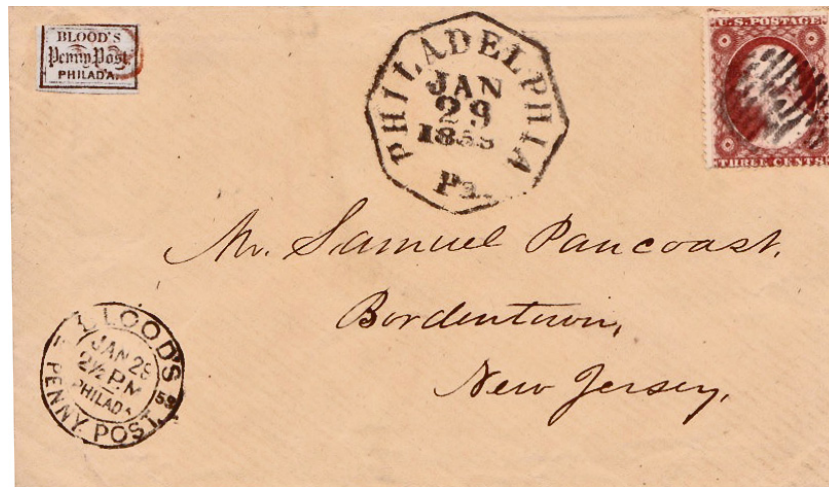 BLOOD'S
Penny Post
PHILAD'A.
PHILADELPHIA
JAN
29
Pa.
U.S. POSTAGE
THREE CENTS
Mr. Samuel Pancoast.
Bordentown,
New Jersey.
BLOOD'S
JAN 29
2½ P.M
PHILADA
PENNY POST